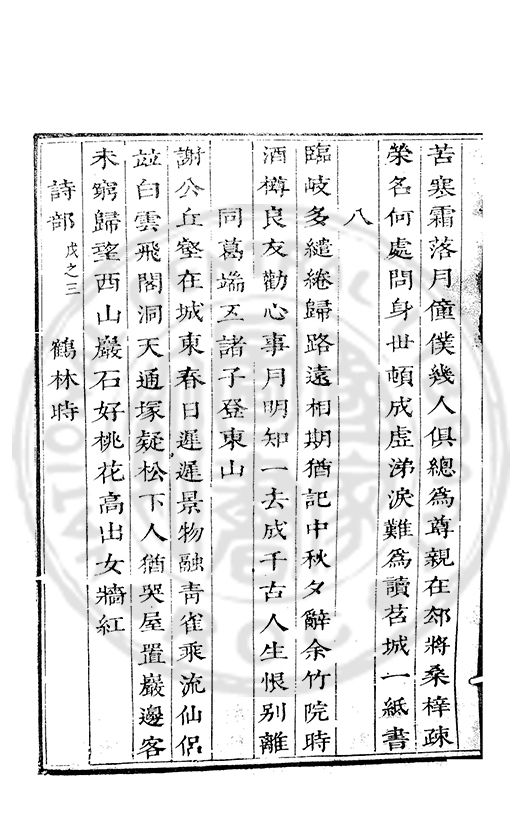 苦寒霜落月僮僕幾人俱總為尊親在郊將桑梓疎
榮名何處問身世頓成虛涕淚難為讀茗城一紙書
八
臨岐多繾綣歸路遠相期猶記中秋夕辭余竹院時
酒樽良友勸心事月明知一去成千古人生恨別離
同葛端五諸子登東山
謝公丘壑在城東春日遲遲景物融青雀乘流仙侶
並白雲飛閣洞天通塚疑松下人猶哭屋置巖邊客
未窮歸望西山巖石好桃花高出女牆紅
詩部 戊之三 鶴林時